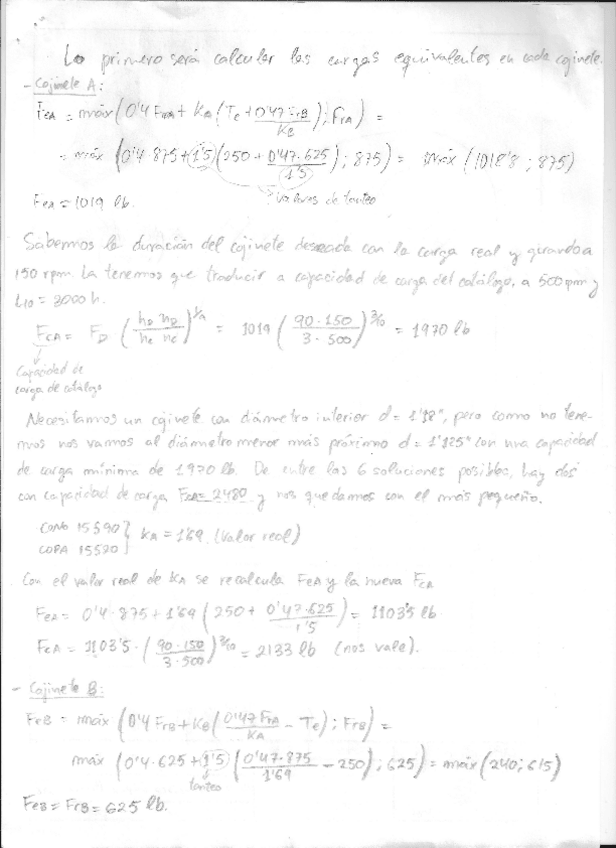 Lo primero será calcular las cargas equivalentes en cada cojinete.
- Cojinete A:
FeA = máx(0'4 FrA + KA (Te + 0'47 FrB / KB); FrA) =
= máx (0'4·875 + 1'5 (250 + 0'47·625 / 1'5); 875) = máx (1018'8 ; 875)
FeA = 1019 lb. ? valores de tanteo
Sabemos la duración del cojinete deseada con la carga real y girando a
150 rpm. La tenemos que traducir a capacidad de carga del catálogo, a 500 rpm y
L10 = 3000 h.
FCA = FD (hD nD / hc nc)^(1/a) = 1019 (90·150 / 3·500)^(3/10) = 1970 lb
Capacidad de
carga de catálogo
Necesitamos un cojinete con diámetro interior d = 1'18", pero como no tene-
mos nos vamos al diámetro menor más próximo d = 1'125" con una capacidad
de carga mínima de 1970 lb. De entre las 6 soluciones posibles, hay dos
con capacidad de carga FCA = 2480 y nos quedamos con el más pequeño.
CONO 15590 } KA = 1'69 (valor real)
COPA 15520
Con el valor real de KA se recalcula FeA y la nueva FCA
FeA = 0'4·875 + 1'69 (250 + 0'47·625 / 1'5) = 1103'5 lb
FCA = 1103'5 · (90·150 / 3·500)^(3/10) = 2133 lb (nos vale).
- Cojinete B:
FrB = máx (0'4 FrB + KB (0'47 FrA / KA - Te); FrB) =
máx (0'4·625 + 1'5 (0'47·875 / 1'69 - 250); 625) = máx (240; 615)
tanteo
FeB = FrB = 625 lb.